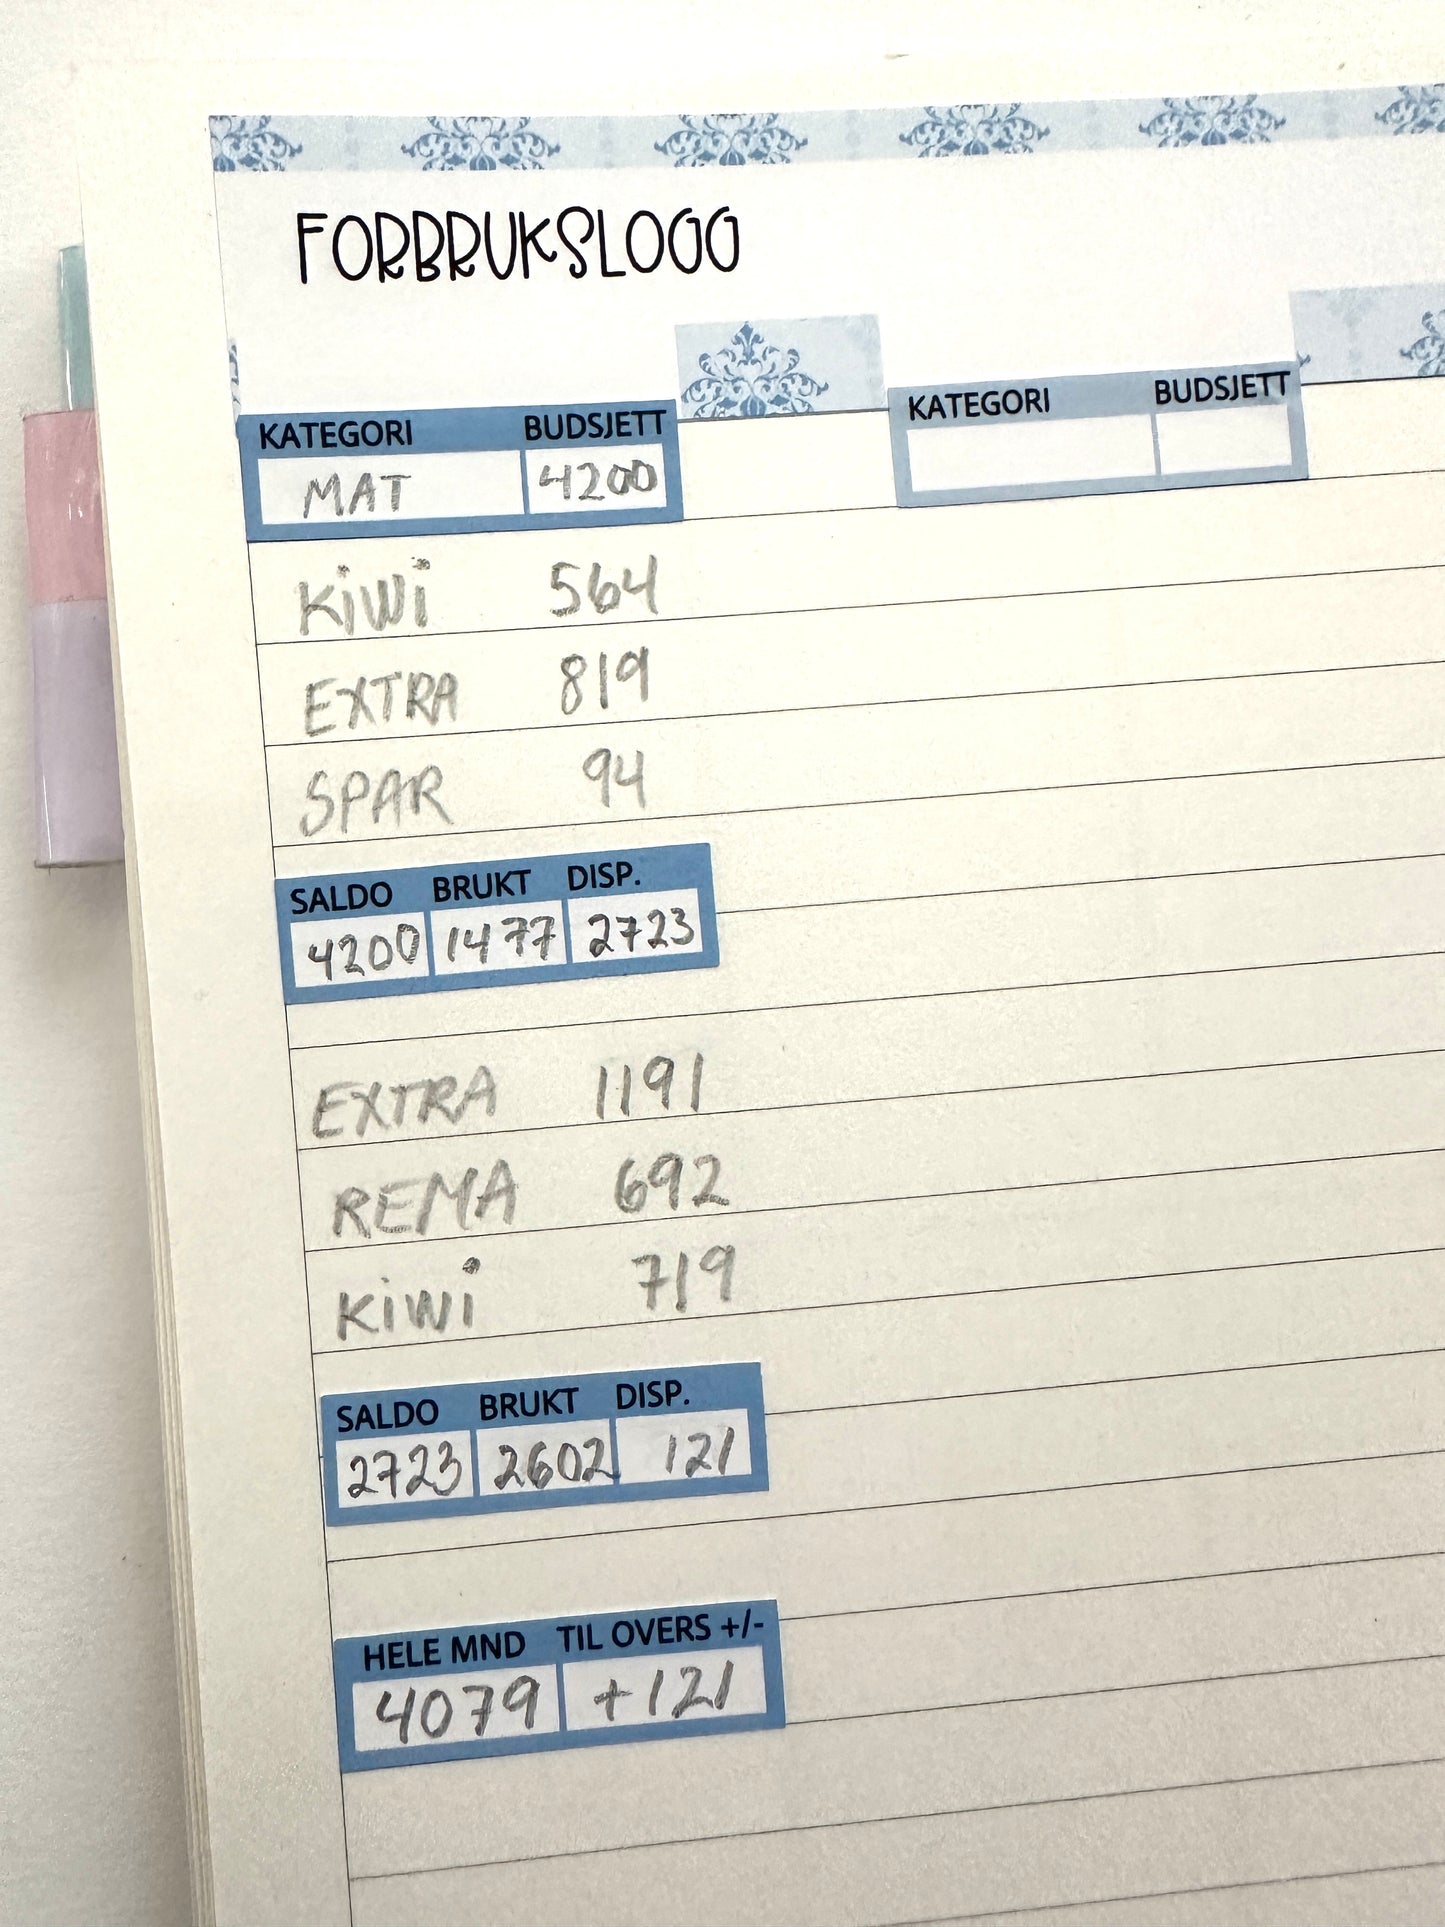 FORBRUKSLOGG
KATEGORI BUDSJETT
MAT 4200
KATEGORI BUDSJETT
KiWi 564
EXTRA 819
SPAR 94
SALDO BRUKT DISP.
4200 1477 2723
EXTRA 1191
REMA 692
KiWi 719
SALDO BRUKT DISP.
2723 2602 121
HELE MND TIL OVERS +/-
4079 +121